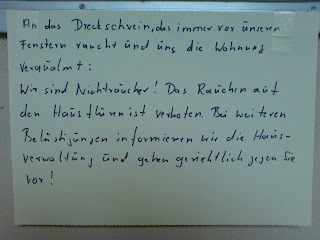 An das Dreckschwein, das immer vor unseren
Fenstern raucht und uns die Wohnung
verqualmt:
Wir sind Nichtraucher! Das Rauchen auf
den Hausfluren ist verboten. Bei weiteren
Belästigungen informieren wir die Haus-
verwaltung und gehen gerichtlich gegen Sie
vor!